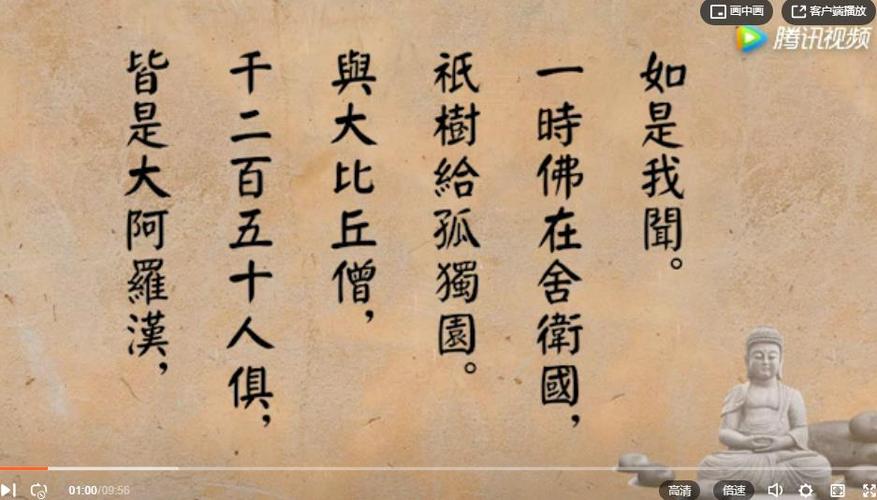 画中画
客户端播放
腾讯视频
如是我聞。
一時佛在舍衛國，
祇樹給孤獨園。
與大比丘僧，
千二百五十人俱，
皆是大阿羅漢，
01:00/09:56
高清
倍速